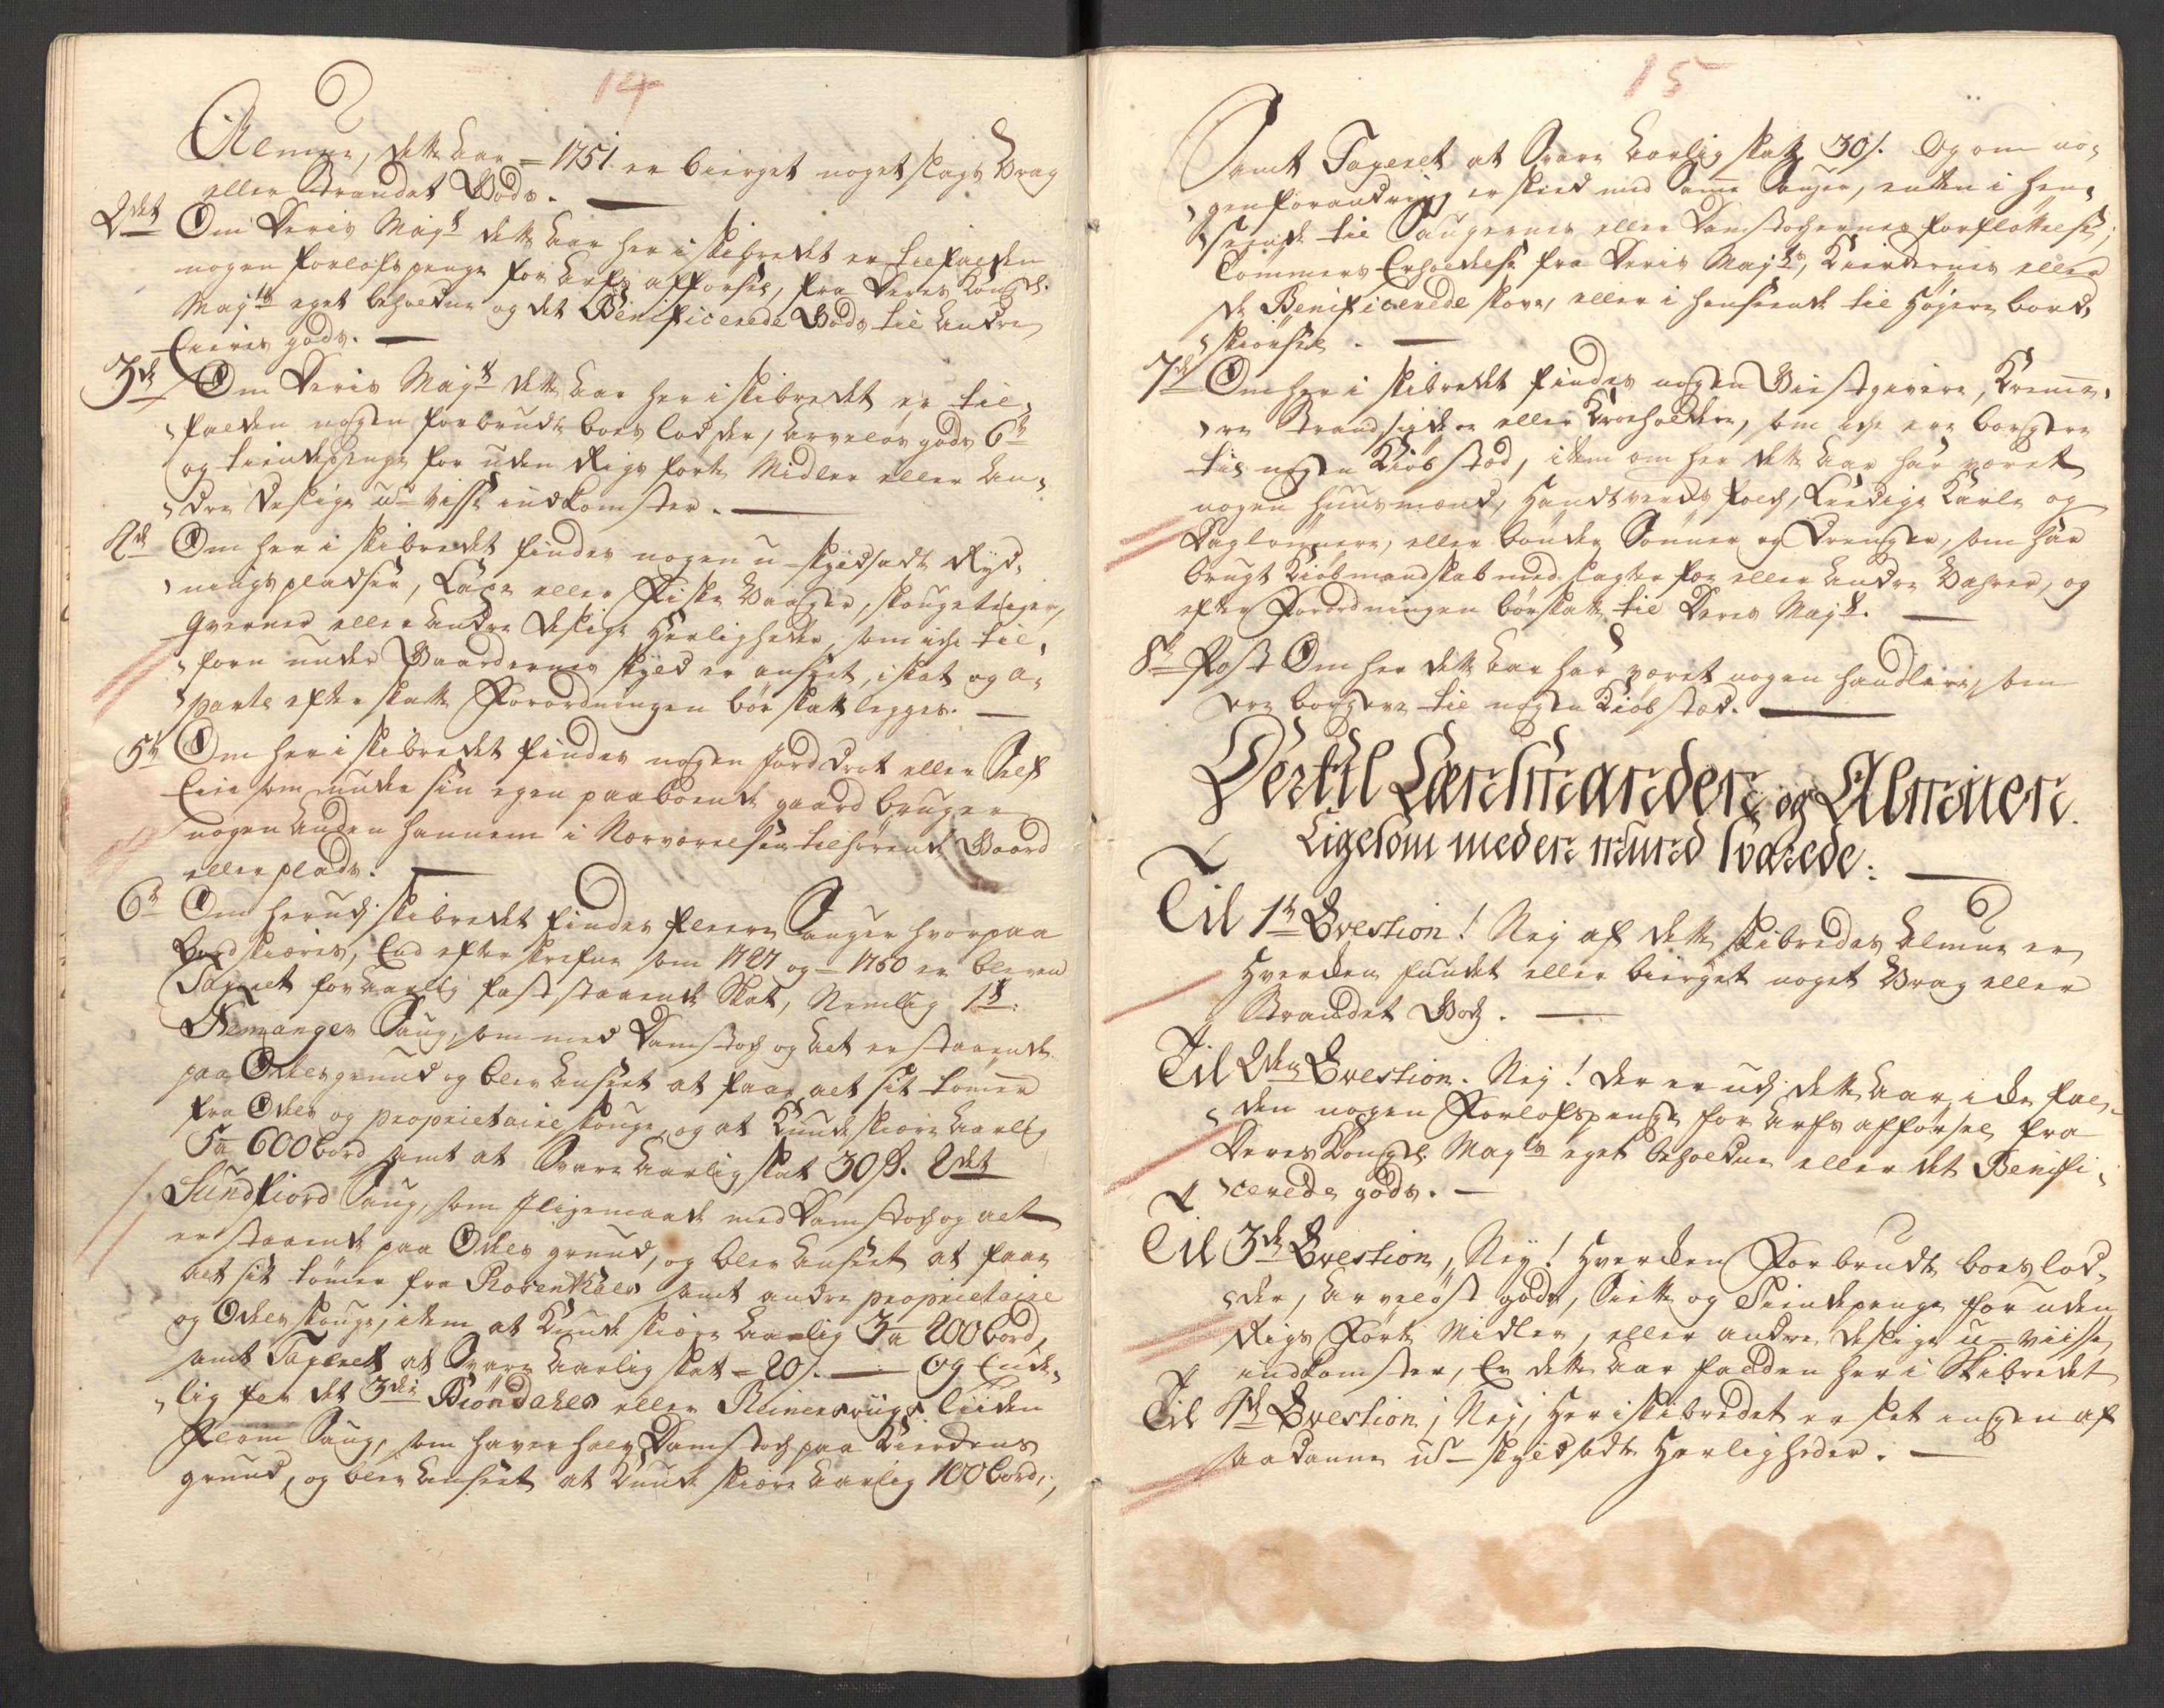 14
Almue, dette Aar = 1751. er bierget noget slags Vrag
eller Strandet Gods.
2det Om Deris Mayt: dette Aar her i skibredet er tilfalden
nogen forlofs penge for Arfs afførsel, fra Deres Kongel:
Mayts eget beholdne og det Benificerede Gods til Andre
Eieris gods.
3die Om Deris Mayt: dette Aar her i skibredet er til-
falden nogen forbrudt boes lodder, Arveløs gods 6te
og tiendepenge for uden Rigs førte Midler eller An-
dre deslige u-visse indkomster.
4de Om her i skibredet findes nogen u-skyldsadt Ryd-
nings pladser, Laxe eller Fiske Vaager, skougeteiger,
Qverner eller Andre deslige Herligheder, som iche til-
forn under Gaardernes skyld er anseet, i skat og a-
parte efter skatte Forordningen bør skatlegges.
5te Om her i skibredet findes nogen Jorddrot eller Self
Eier som uden sin egen paaboende gaard bruger
nogen Anden hannem i Nærværelsen tilhørende Gaard
eller plads.
6te Om herudj skibredet findes fleere Sauger hvorpaa
Bord skiæres, End efterskrefne som 1727 og 1750 er bleven
Taxeret for Aarlig fast staaende Skat, Nemlig 1te:
Femanger Saug, som med Damstoch og alt er staaende
paa Odels grund og blev Anseet at faae alt sit tømer
fra Odels og proprietaire skouge, og at Kunde skiære Aarlig
5 a 600 bord samt at Svare Aarlig skat 30 s. 2det
Sundfiord Saug, som i ligemaade med Damstoch og alt
er staaende paa Odels grund, og blev Anseet at faae
alt sit tømer fra Rosenthals samt andre proprietaire
og Odels skouge, item at Kunde skiære Aarlig 3 a 400 bord,
samt Taxeret at Svare Aarlig skat = 20 s. — Og Ende-
lig for det 3die Biøndahls eller Reinersvigs liiden
Flom Saug, som haver halv Damstoch paa Kierchens
grund, og blev Anseet at Kunde skiære Aarlig 100 bord,
15
Samt Taxeret at Svare Aarlig skat 30 s. Og om no-
gen forandring er skied med Same Sauger, enten i hen-
seende til Saugernes eller Damstochernes forfløttelse,
Tommers Erholdelse fra Deris Mayts, Kierchernes eller
de Benificerede skove, eller i henseende til høyere bord
skiørsel.
7de Om her i skibredet findes nogen Giestgivere, Kræme-
re Strandsiddere eller Kroeholdere, som iche ere borgere
til nogen Kiøbstad, item om her dette Aar har været
nogen huusmænd, Handtverchs folch, Ledige Karle og
Daglønnere, eller bønder Sønner og Drenger, som har
brugt Kiøbmandskab med slagter fæe eller Andre Vahrer, og
efter Forordningen bør skatte til Deres Mayt:
8de Post Om her dette Aar har været nogen handlere, som
ere borgere til nogen Kiøbstad.
Dertil Lænsmanden og Almuen
Ligesom med en mund svarede:
Til 1te Qvestion! Nej af dette skibredes Almue er
Hverchen fundet eller bierget noget Vrag eller
Strandet Gods.
Til 2den Qvestion. Nej! der er udj dette Aar iche fal-
den nogen Forlofspenge for Arfs afførsel fra
Deres Kongel Mayts eget beholdne eller det Benifi-
cerede gods.
Til 3die Qvestion, Nej! Hverchen Forbrudt boeslod-
der, Arveløst gods, Siette og Tiendepenge for uden
Rigs Førte Midler, eller andre deslige u-visse
indkomster, Er dette Aar falden her i Skibredet
Til 4de Qvestion, Nej, Her i skibredet er slet ingen af
saadanne u-skyldsadte Herligheder.